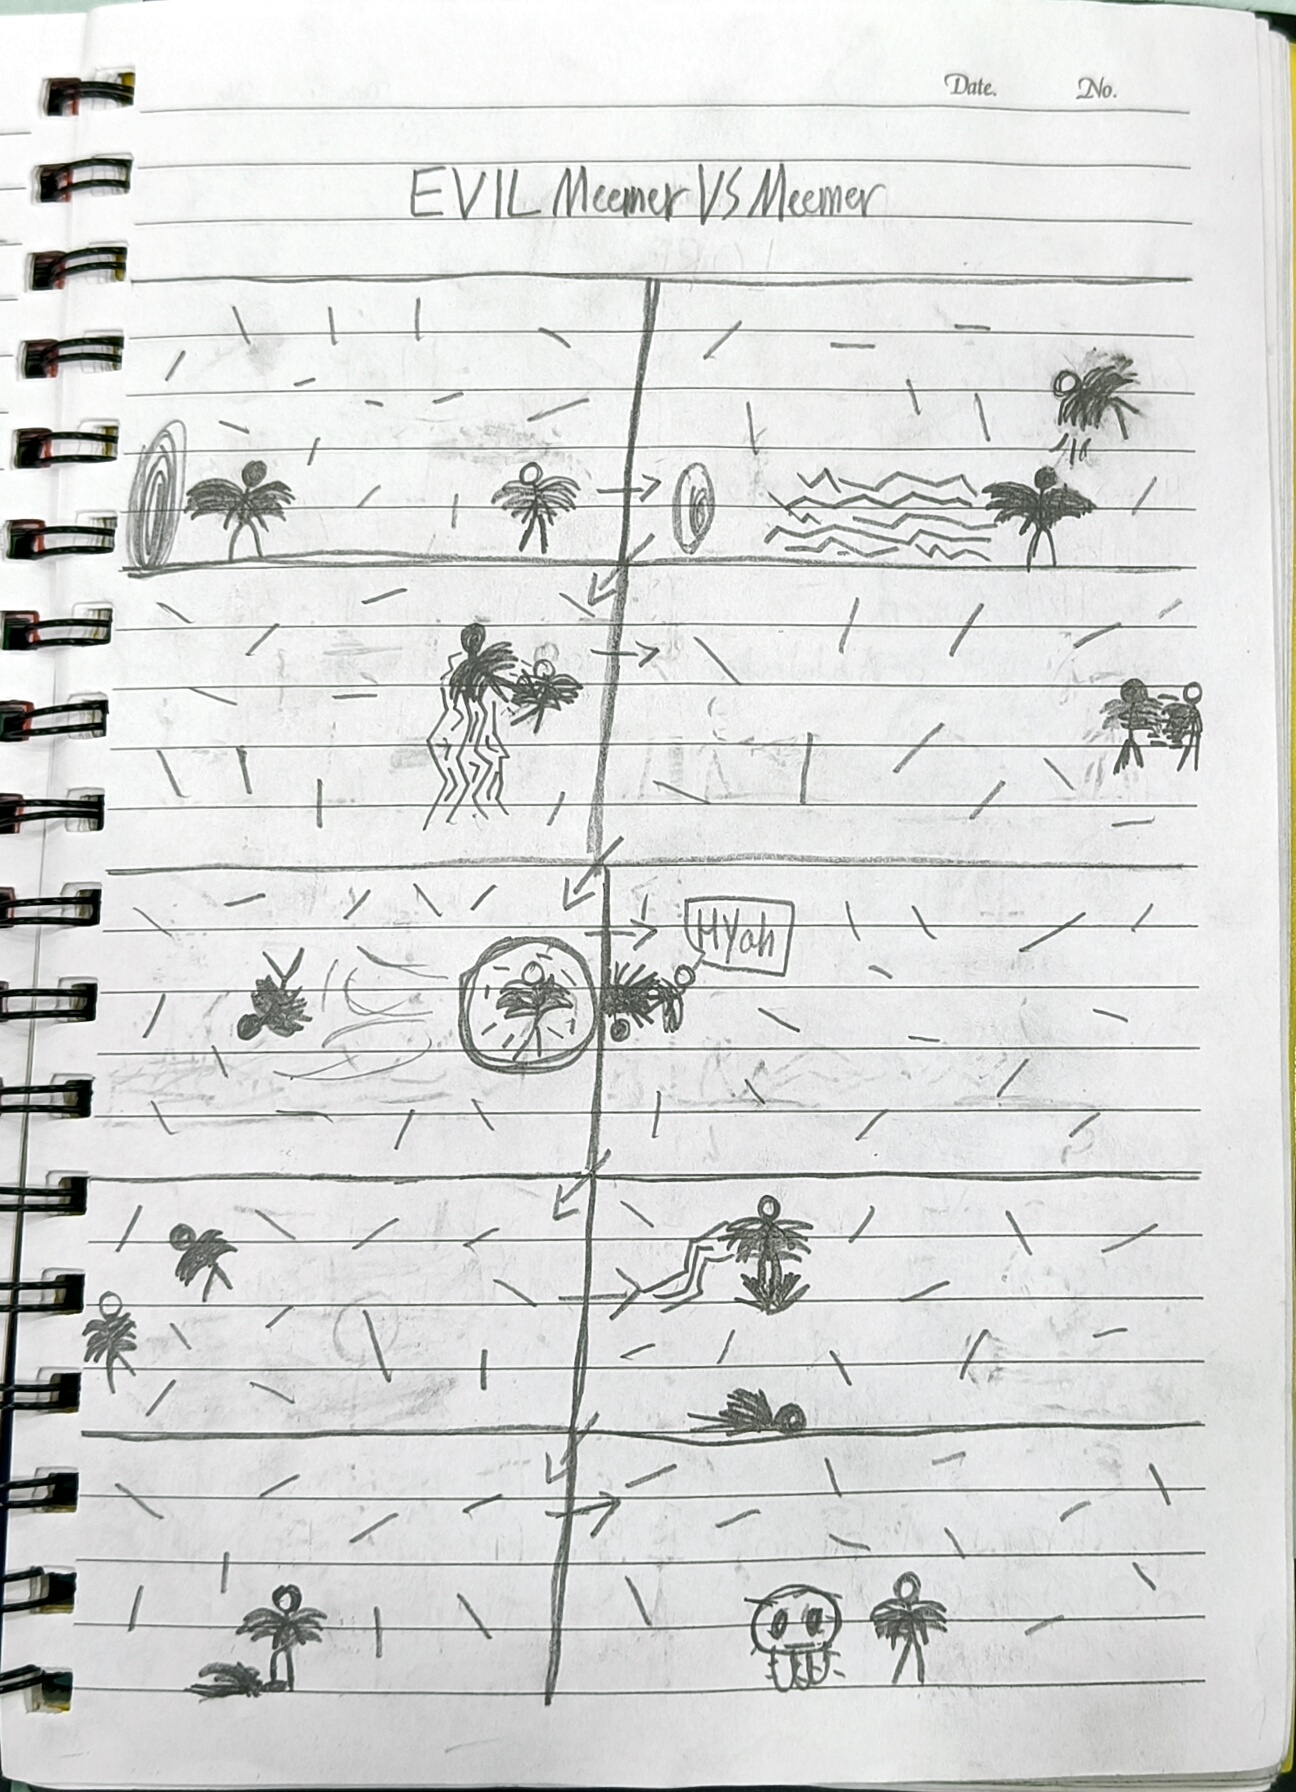 Date. No.
EVIL Meemer VS Meemer
MYah